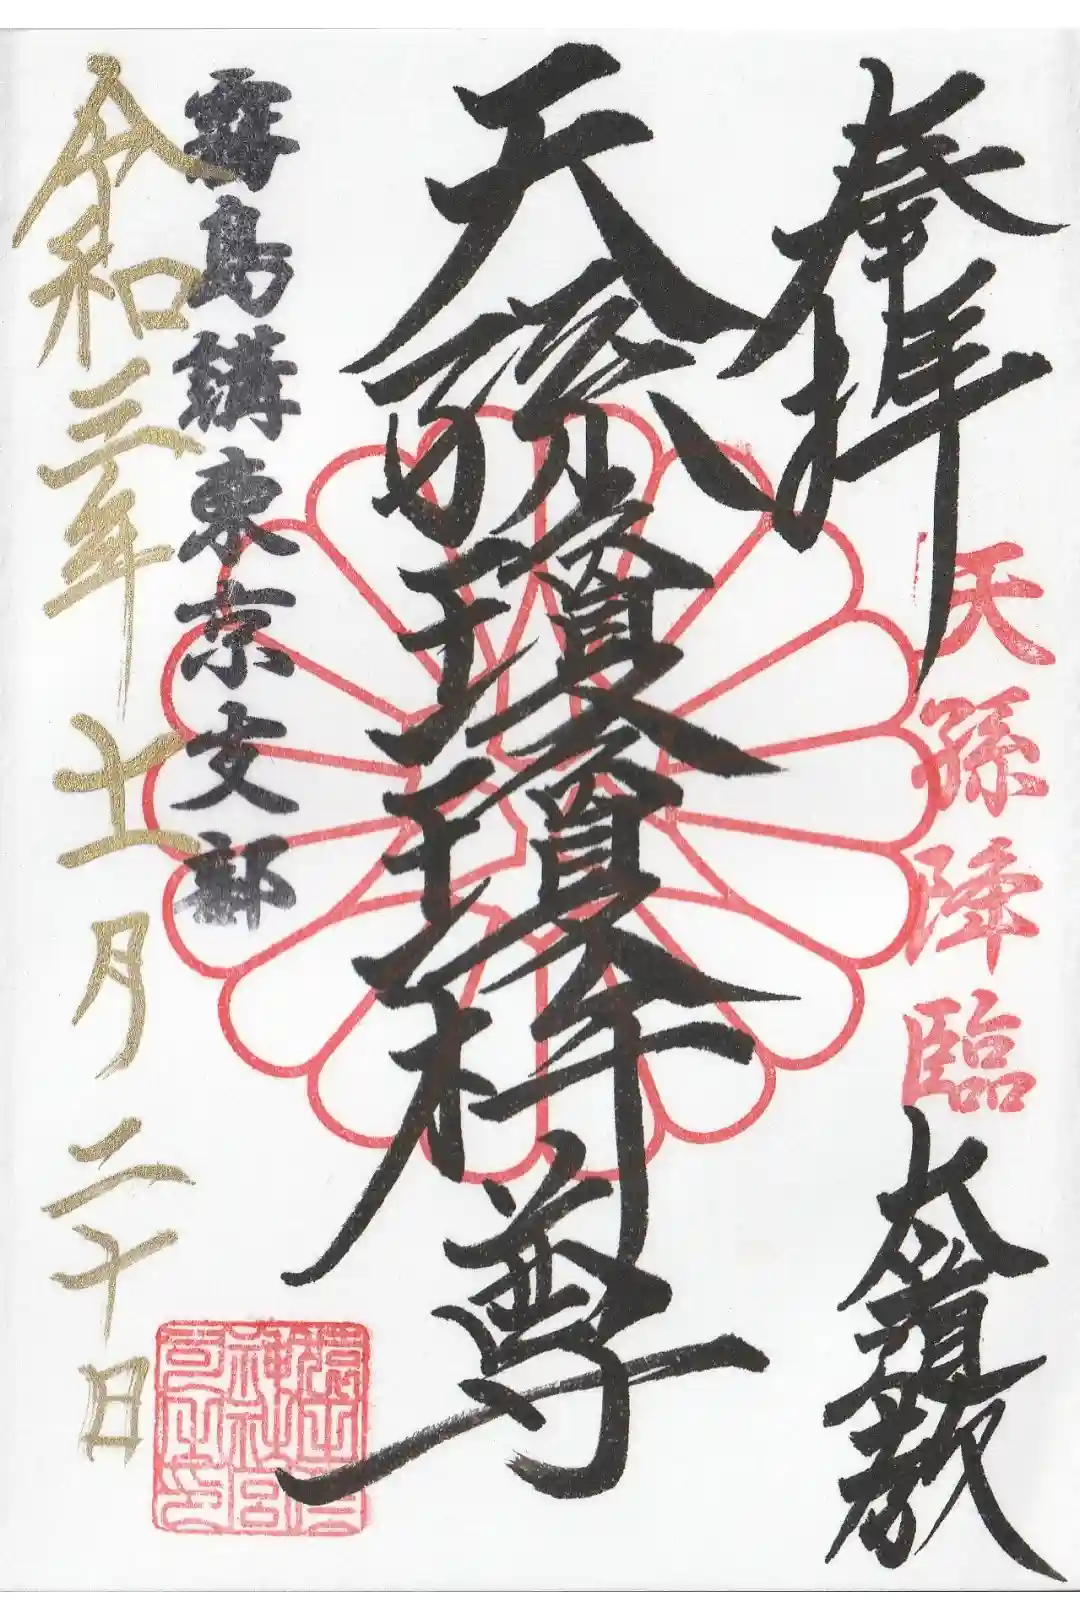 奉拝
天孫降臨
大道教
天饒瓊瓊杵尊
霧島講東京支部
令和三年十一月二十日